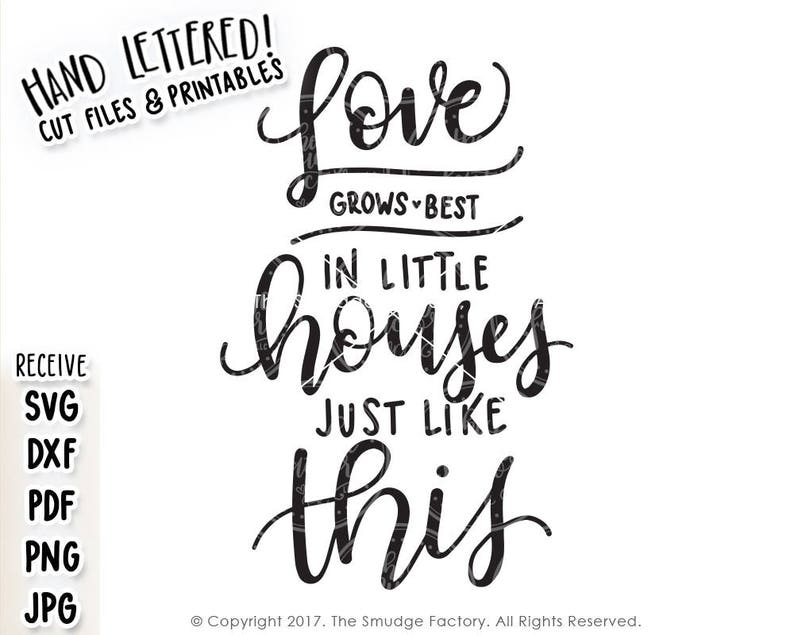 HAND LETTERED!
CUT FILES & PRINTABLES
Love
GROWS BEST
IN LITTLE
houses
JUST LIKE
this
RECEIVE
SVG
DXF
PDF
PNG
JPG
© Copyright 2017. The Smudge Factory. All Rights Reserved.